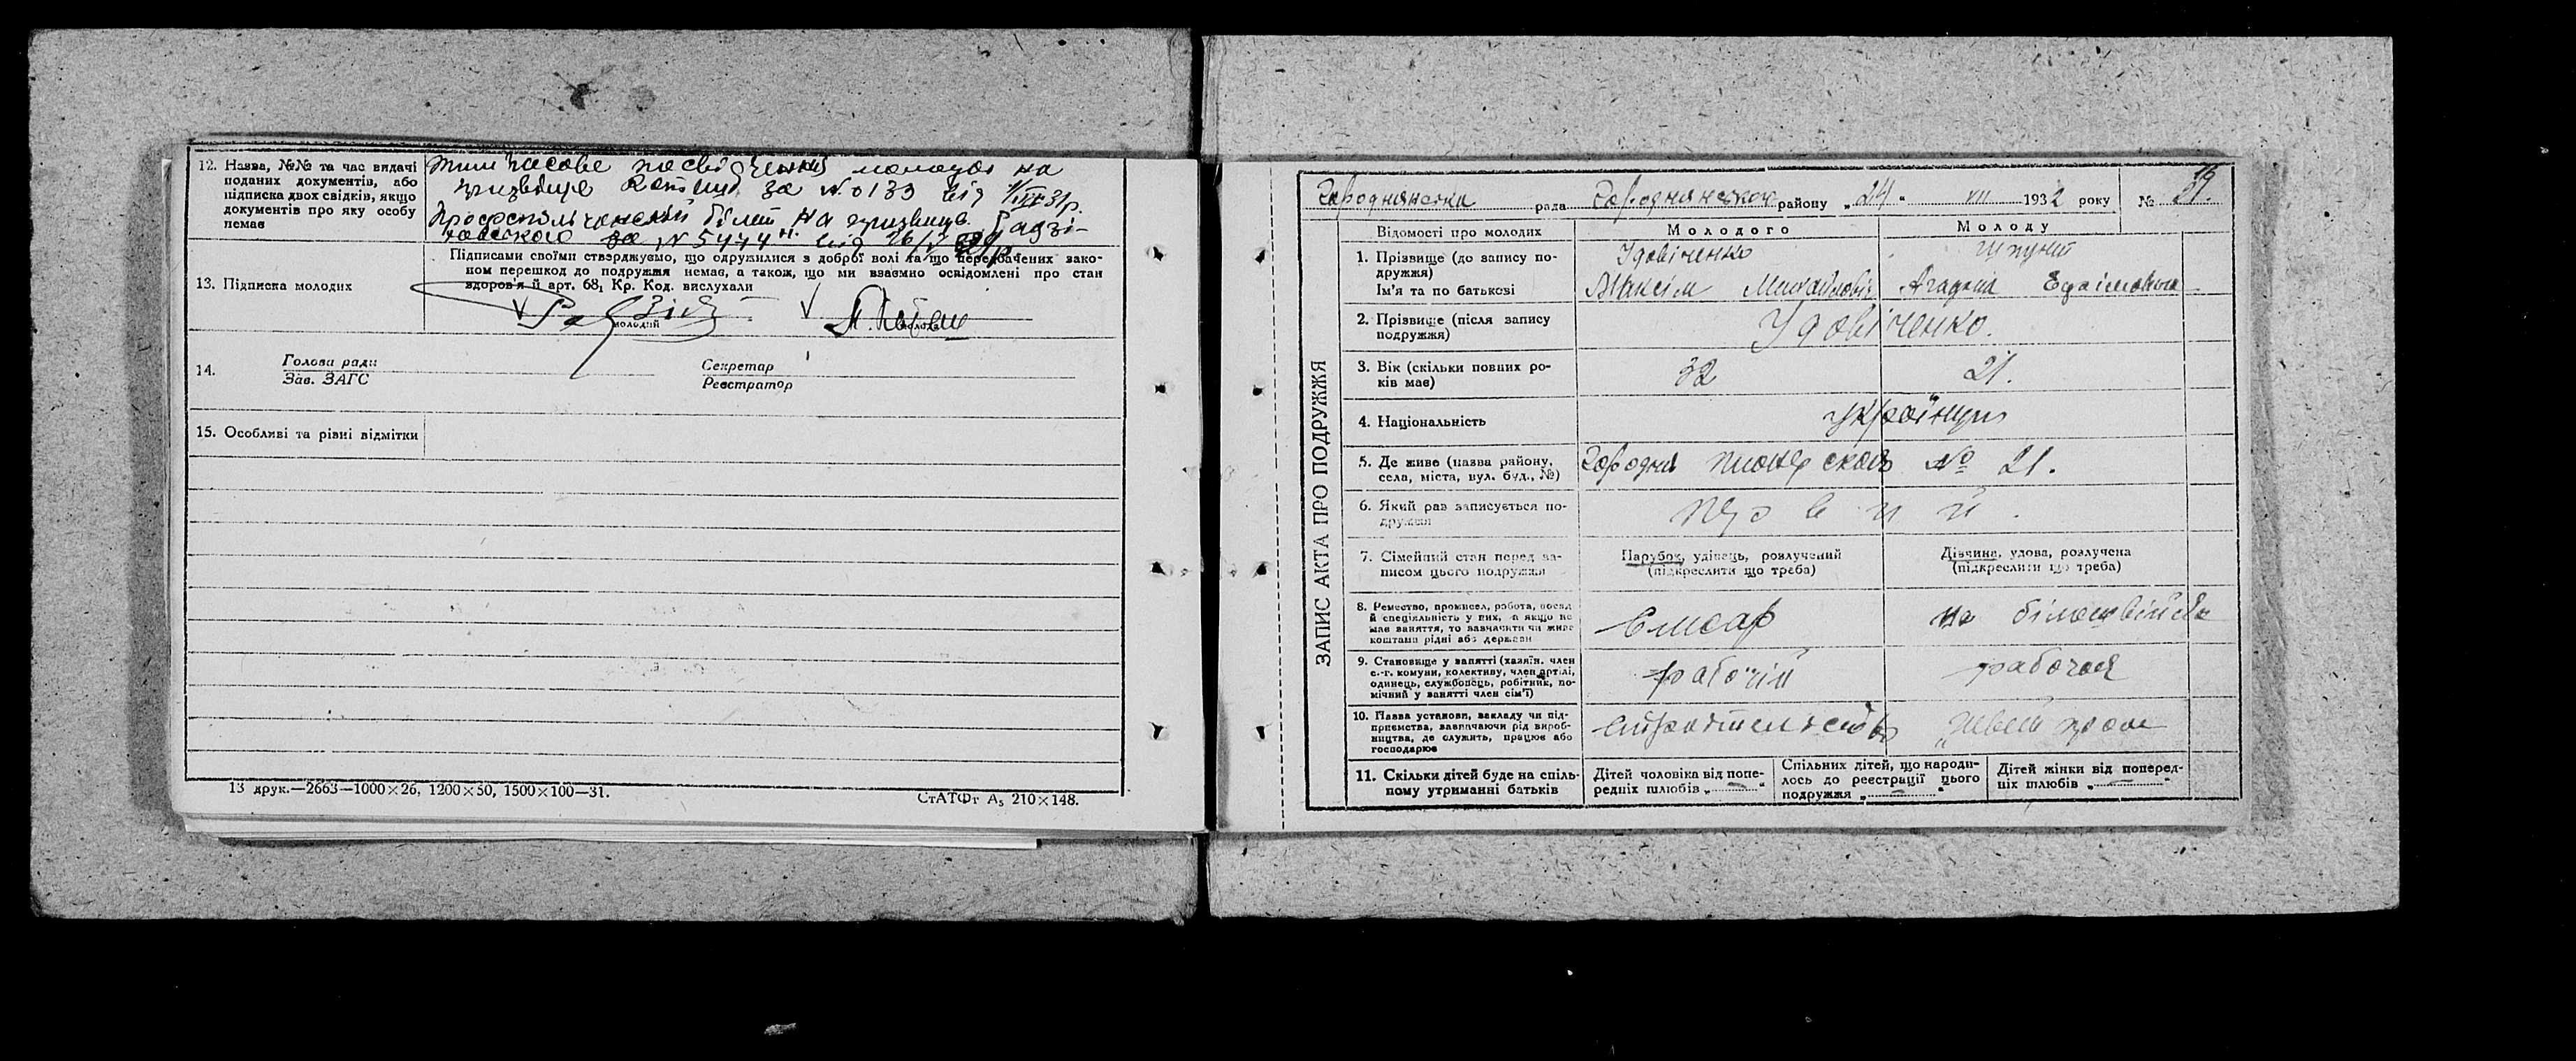 12. Назва, №№ та час видачі
поданих документів, або
підписка двох свідків, якщо
документів про яку особу
немає
Тимчасове посвідчення молодої на
призвище за № 0139 від
білет на призвище Радзі-
за № 5474 від 26/V
Підписами своїми стверджуємо, що одружилися з доброї волі та що передбачених зако-
ном перешкод до подружжя немає, а також, що ми взаємно освідомлені про стан
здоров'я й арт. 68₁ Кр. Код. вислухали
13. Підписка молодих
молодий
молода
14.
Голова ради
Зав. ЗАГС
Секретар
Реєстратор
15. Особливі та різні відмітки
13 друк.—2663—1000×26, 1200×50, 1500×100—31.
СтАТФт А₅ 210×148.
ЗАПИС АКТА ПРО ПОДРУЖЖЯ
Городнянська рада Городнянського району „24“ VII 1932 року №
Відомості про молодих
Молодого
Молоду
1. Прізвище (до запису по-
дружжя)
Ім'я та по батькові
Удовіченко
Шпунт
Максім Михайловіч
2. Прізвище (після запису
подружжя)
Удовіченко.
3. Вік (скільки повних ро-
ків має)
32
21.
4. Національність
українці
5. Де живе (назва району,
села, міста, вул. буд., №)
Городня пионерская № 21.
6. Який раз записується по-
дружжя
7. Сімейний стан перед за-
писом цього подружжя
Парубок, удівець, розлучений
(підкреслити що треба)
Дівчина, удова, розлучена
(підкреслити що треба)
8. Ремество, промисел, робота, посад
й спеціяльність у них, а якщо не
має заняття, то зазначити чи живе
коштами рідні або держави
Слюсар
на
9. Становище у занятті (хазяїн, член
с.-г. комуни, колективу, член артілі,
одинець, службовець, робітник, по-
мічний у занятті член сім'ї)
рабочій
рабочая
10. Назва установи, закладу чи під-
приємства, зазначаючи рід вироб-
ництва, де служить, працює або
господарює
11. Скільки дітей буде на спіль-
ному утриманні батьків
Дітей чоловіка від попе-
редніх шлюбів „ — “
Спільних дітей, що народи-
лось до реєстрації цього
подружжя „ — “
Дітей жінки від поперед-
ніх шлюбів „ — “